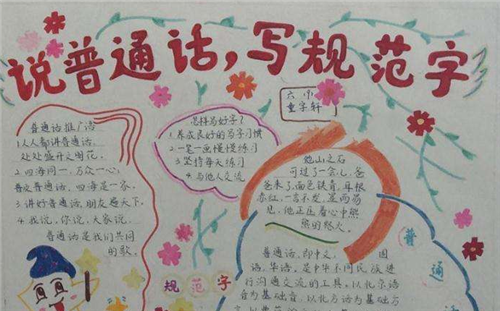 说普通话,写规范字
六(1)
童字轩
普通话推广语
1人人都讲普通话,
处处盛开文明花。
2.四海同一,万众一心,
普及普通话,四海是一家。
3.讲好普通话,朋友遍天下。
4.我说,你说,大家说,
普通话是我们共同
的歌
怎样写好字?
1.养成良好的写字习惯
2一笔一画慢慢练习
3坚持每天练习
4.与他人交流
他山之石
可过了一会儿,爸
爸来了,面色铁青,耳根
赤红,一言不发,显而易
见,他正压着心中熊
熊的怒火
普通话,即中文,
语,华语,是中华不同民族进
行沟通交流的工具,以北京语
音为基础音,以北方话为基
普
通
话
规范字